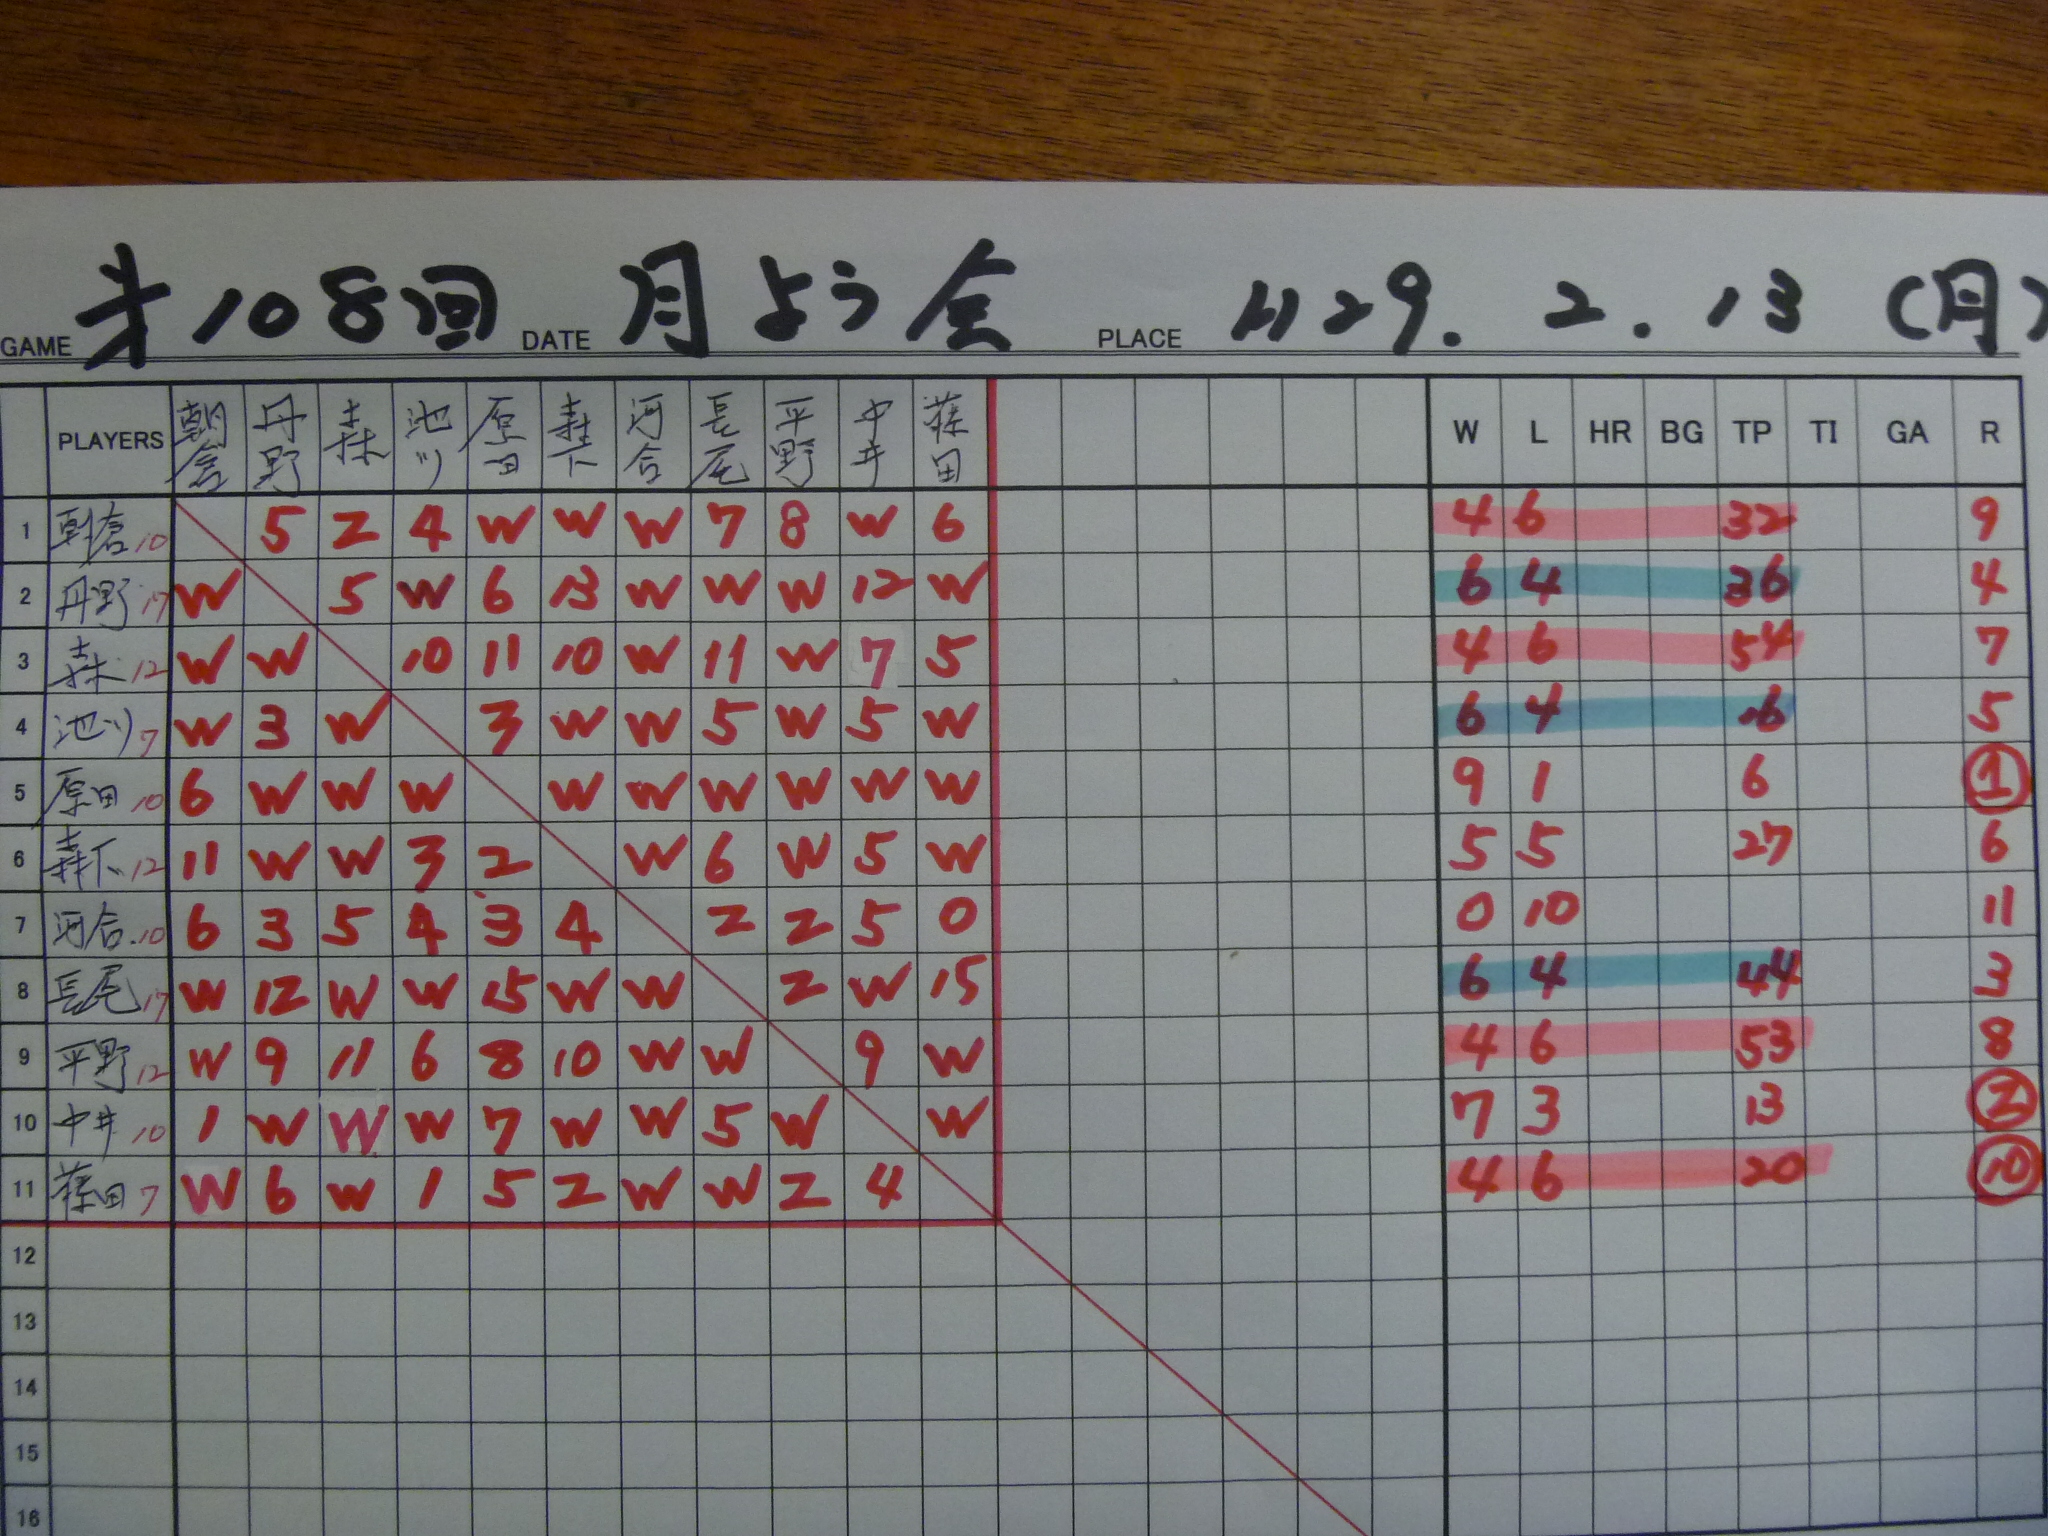 GAME 第108回 DATE 月よう会 PLACE H29. 2. 13 (月)
PLAYERS 朝倉 丹野 森 池ツ 原田 森下 河合 長尾 平野 中井 篠田 W L HR BG TP TI GA R
1 朝倉 10 5 2 4 W W W 7 8 W 6 4 6 32 9
2 丹野 17 W 5 W 6 13 W W W 12 W 6 4 36 4
3 森 12 W W 10 11 10 W 11 W 7 5 4 6 54 7
4 池ツ 7 W 3 W 3 W W 5 W 5 W 6 4 16 5
5 原田 10 6 W W W W W W W W W 9 1 6 1
6 森下 12 11 W W 3 2 W 6 W 5 W 5 5 27 6
7 河合 10 6 3 5 4 3 4 2 2 5 0 0 10 11
8 長尾 17 W 12 W W 15 W W 2 W 15 6 4 44 3
9 平野 12 W 9 11 6 8 10 W W 9 W 4 6 53 8
10 中井 10 1 W W W 7 W W 5 W W 7 3 13 2
11 篠田 7 W 6 W 1 5 2 W W 2 4 4 6 20 10
12
13
14
15
16